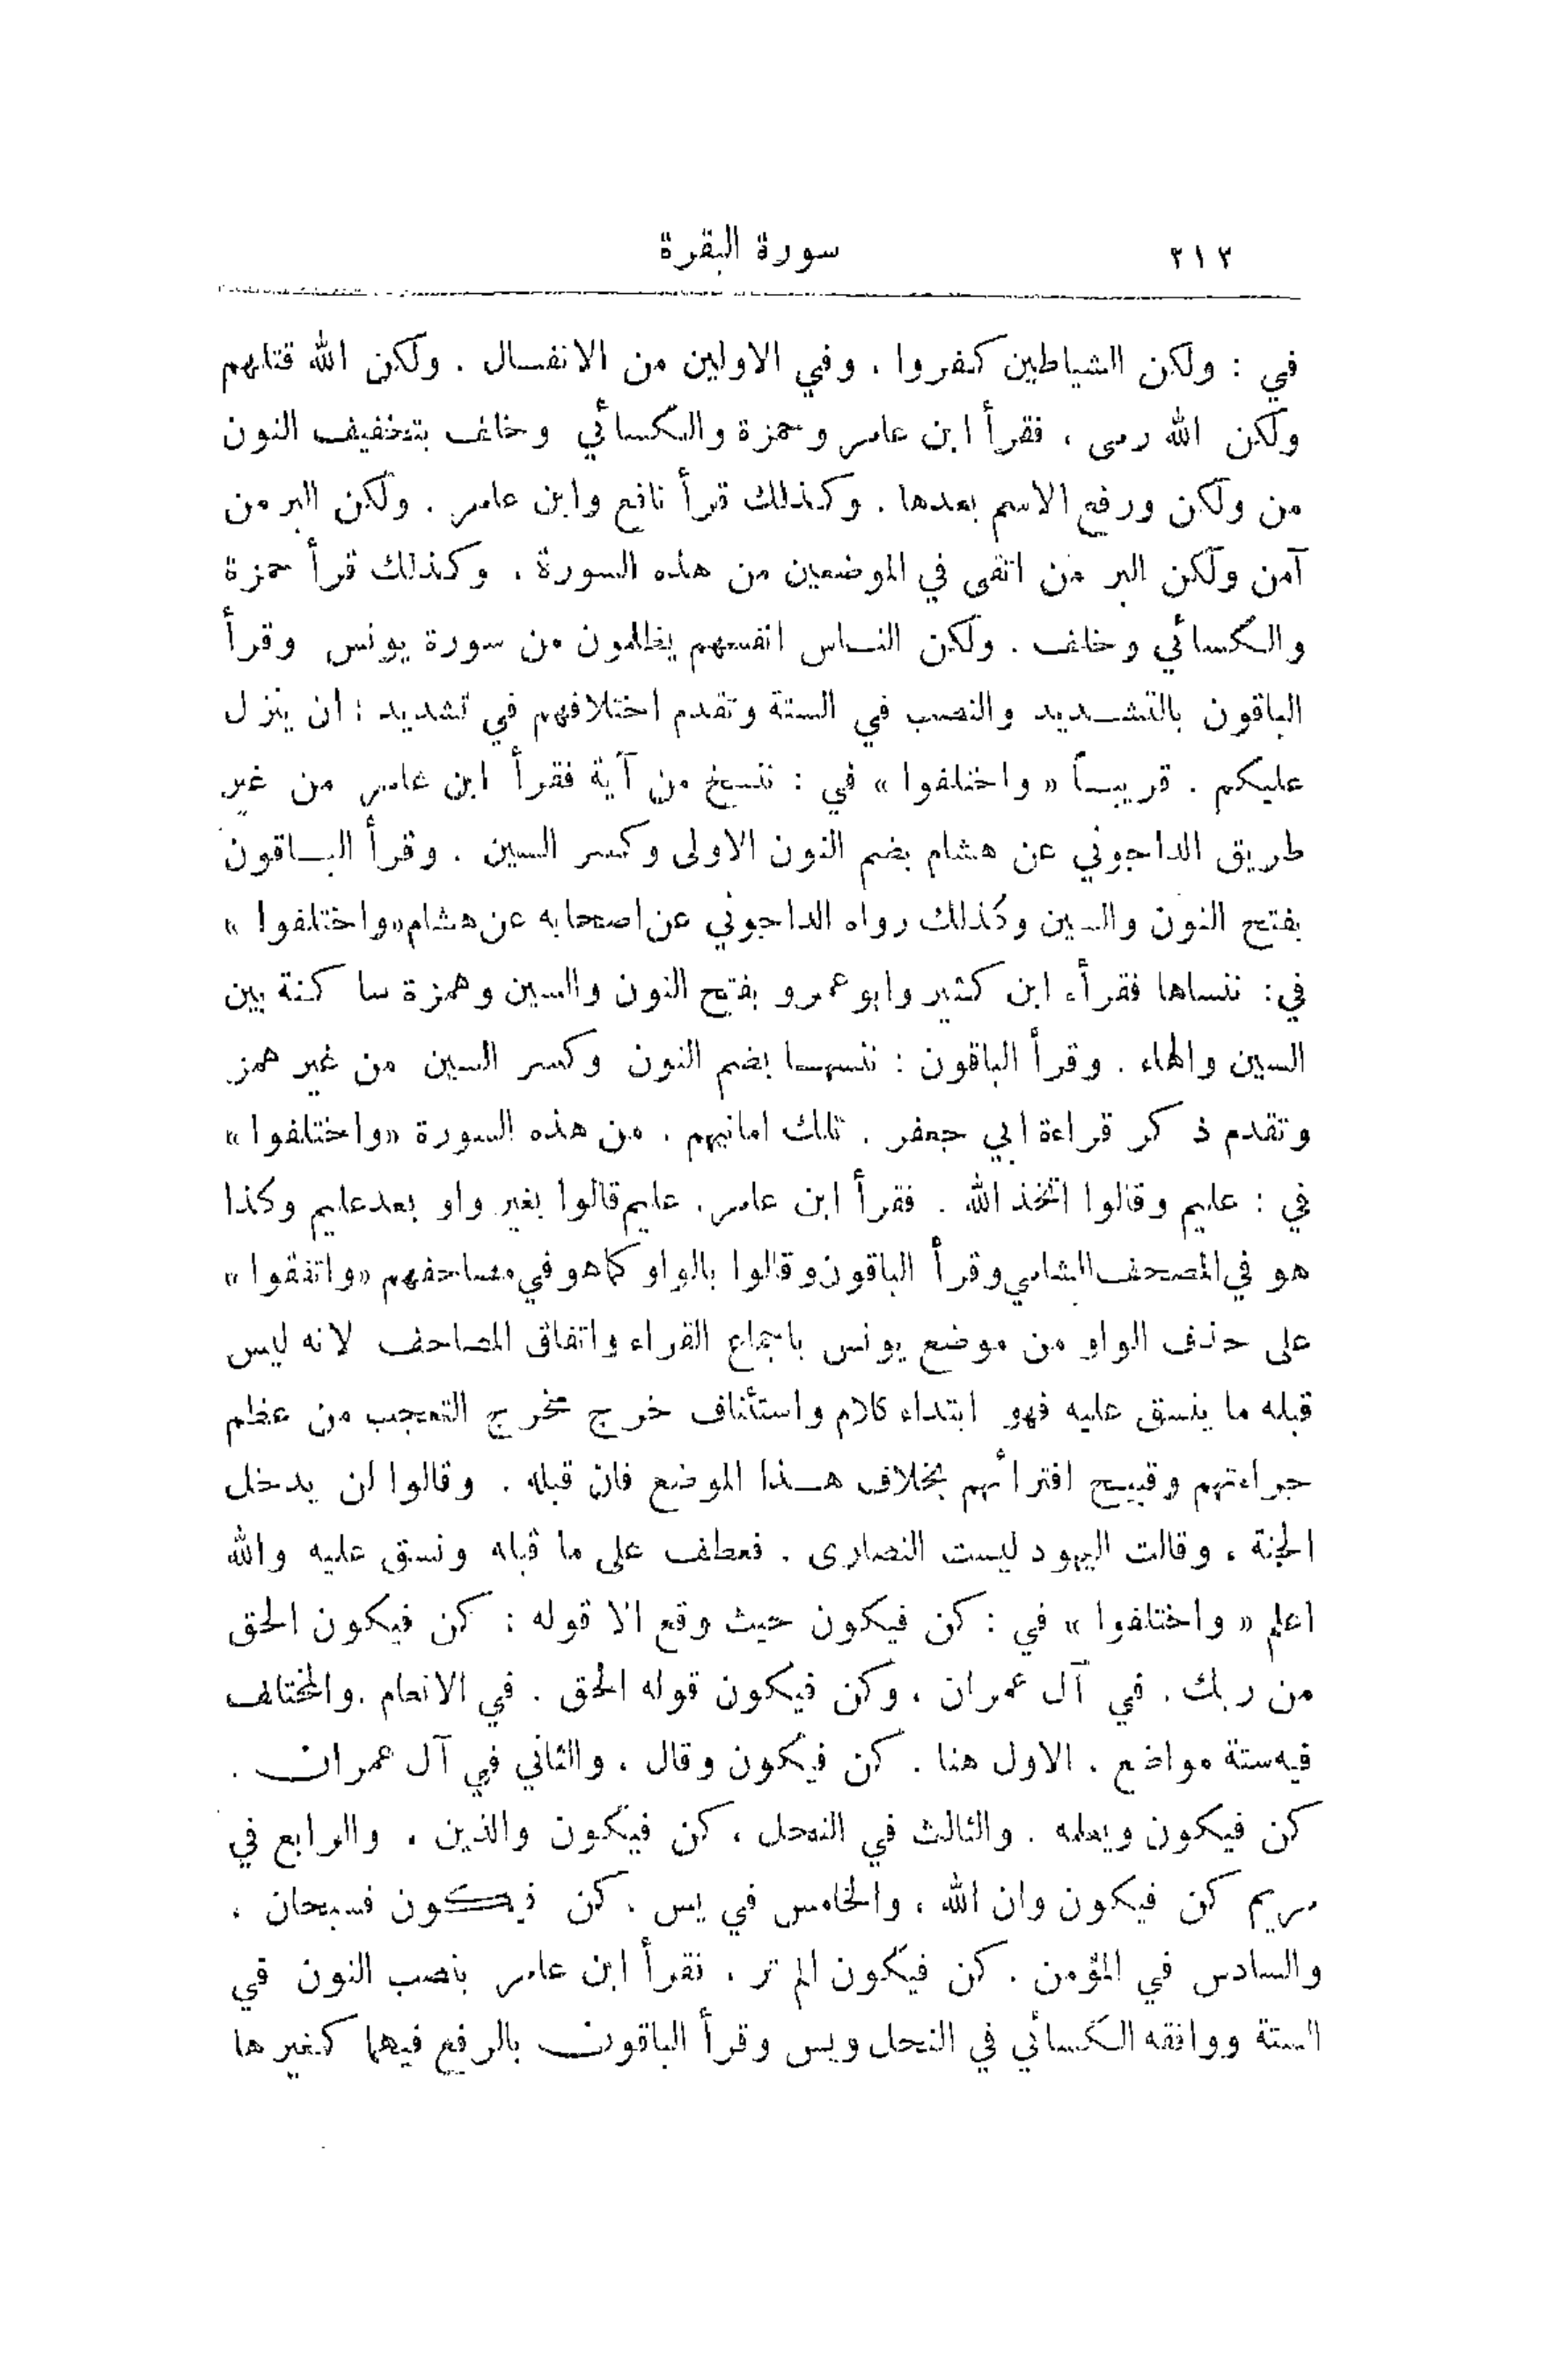 ٢١٣ سورة البقرة
في : ولكن الشياطين كفروا . وفي الاولين من الانفـال . ولكن الله قتلهم
ولكن الله رمى ، فقرأ ابن عامر وحمزة والكسائي وخلف بتخفيف النون
من ولكن ورفع الاسم بعدها . وكذلك قرأ نافع وابن عامر . ولكن البر من
آمن ولكن البر من اتقى في الموضعين من هذه السورة . وكذلك قرأ حمزة
والكسائي وخلف . ولكن النـاس انفسهم يظلمون من سورة يونس وقرأ
الباقون بالتشـديد والنصب في الستة وتقدم اختلافهم في تشديد : ان ينزل
عليكم . قريبـاً « واختلفوا » في : ننسخ من آية فقرأ ابن عامر من غير
طريق الداجوني عن هشام بضم النون الاولى وكسر السين . وقرأ البـاقون
بفتح النون والسين وكذلك رواه الداجوني عن اصحابه عن هشام «واختلفوا »
في: ننساها فقرأه ابن كثير وابو عمرو بفتح النون والسين وهمزة سا كنة بين
السين والهاء . وقرأ الباقون : ننسهـا بضم النون وكسر السين من غير همز
وتقدم ذ كر قراءة ابي جعفر . تلك امانيهم . من هذه السورة «واختلفوا»
في : عليم وقالوا اتخذ الله . فقرأ ابن عامر . عليم قالوا بغير واو بعد عليم وكذا
هو في المصحف الشامي وقرأ الباقون وقالوا بالواو كما هو في مصاحفهم «واتفقوا»
على حذف الواو من موضع يونس باجماع القراء واتفاق المصاحف لانه ليس
قبله ما ينسق عليه فهو ابتداء كلام واستئناف خرج مخرج التعجب من عظم
جراءتهم وقبيـح افترائهم بخلاف هـذا الموضع فان قبله . وقالوا لن يدخل
الجنة ، وقالت اليهود ليست النصارى . فعطف على ما قبله ونسق عليه والله
اعلم « واختلفوا » في : كن فيكون حيث وقع الا قوله : كن فيكون الحق
من ربك . في آل عمران ، وكن فيكون قوله الحق . في الانعام . والمختلف
فيه ستة مواضع . الاول هنا . كن فيكون وقال ، والثاني في آل عمران .
كن فيكون ويعلمه . والثالث في النحل ، كن فيكون والذين . والرابع في
مريم كن فيكون وان الله ، والخامس في يس . كن فيكون فسبحان .
والسادس في المؤمن . كن فيكون الم تر . فقرأ ابن عامر بنصب النون في
الستة ووافقه الكسائي في النحل ويس وقرأ الباقون بالرفع فيهما كغير ها